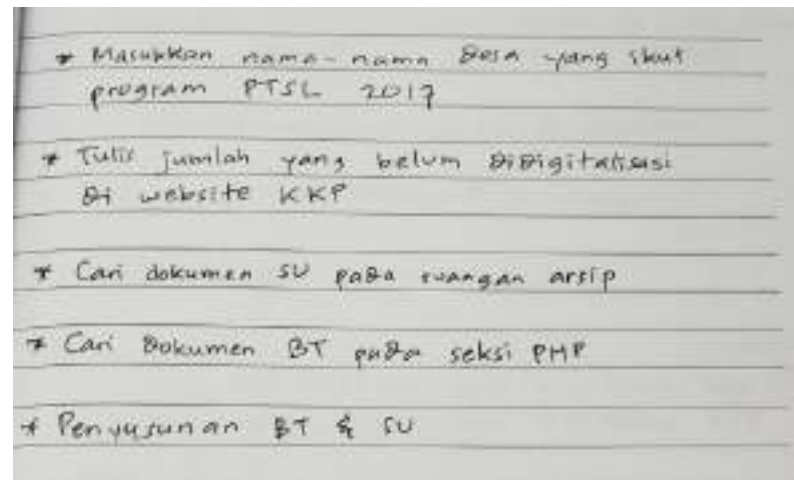 * Masukkan nama-nama Desa yang ikut
program PTSL 2017
* Tulis jumlah yang belum Didigitalisasi
Di website KKP
* Cari dokumen SU pada ruangan arsip
* Cari Dokumen BT pada seksi PMP
* Penyusunan BT & SU